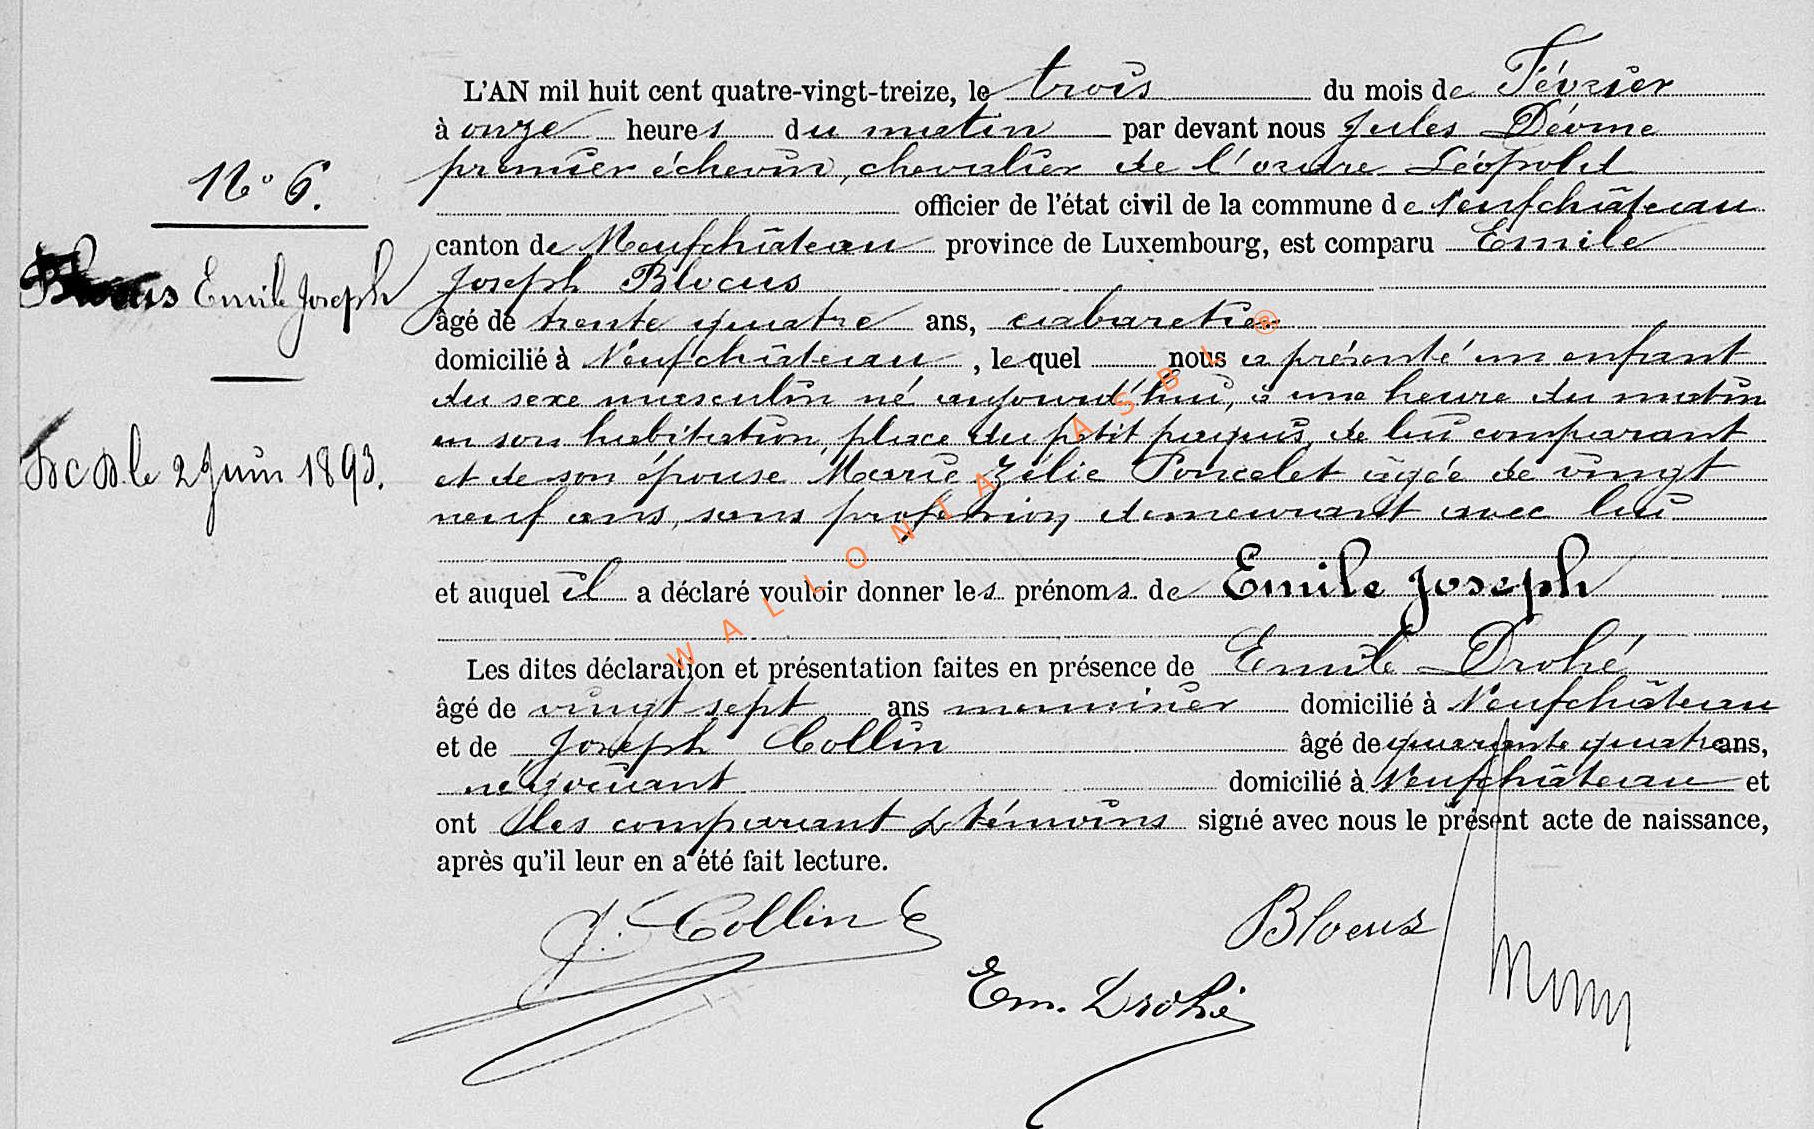 N° 6.
Blocus Emile Joseph
DCD le 2 Juin 1893.
L'AN mil huit cent quatre-vingt-treize, le trois du mois de Février
à onze heures du matin par devant nous Jules Dévme
premier échevin, chevalier de l'ordre Léopold
officier de l'état civil de la commune de Neufchâteau
canton de Neufchâteau province de Luxembourg, est comparu Emile
Joseph Blocus
âgé de trente quatre ans, cabaretier
domicilié à Neufchâteau, lequel nous a présenté un enfant
du sexe masculin né aujourd'hui, à une heure du matin
en son habitation, place du petit paquis, de lui comparant
et de son épouse Marie Zélie Poncelet âgée de vingt
neuf ans, sans profession demeurant avec lui
et auquel il a déclaré vouloir donner les prénoms de Emile Joseph
Les dites déclaration et présentation faites en présence de Emile Drohé
âgé de vingt sept ans menuisier domicilié à Neufchâteau
et de Joseph Collin âgé de quarante quatre ans,
négociant domicilié à Neufchâteau et
ont les comparant & témoins signé avec nous le présent acte de naissance,
après qu'il leur en a été fait lecture.
J. Collin
Blocus
Em. Drohé
WALLONIA ASBL ®